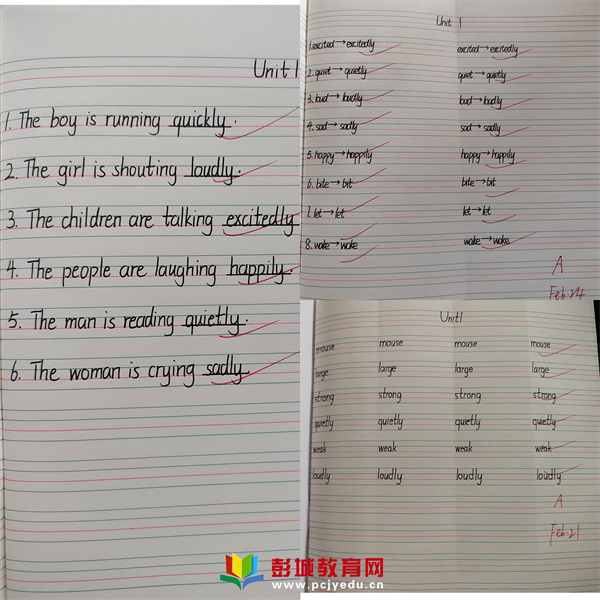 Unit 1
1. The boy is running quickly.
2. The girl is shouting loudly.
3. The children are talking excitedly
4. The people are laughing happily.
5. The man is reading quietly.
6. The woman is crying sadly
Unit 1
1. excited→excitedly excited→excitedly
2. quiet→quietly quiet→quietly
3. loud→loudly loud→loudly
4. sad→sadly sad→sadly
5. happy→happily happy→happily
6. bite→bit bite→bit
7. let→let let→let
8. wake→woke wake→woke
A
Feb.24
Unit1
mouse mouse mouse mouse
large large large large
strong strong strong strong
quietly quietly quietly quietly
weak weak weak weak
loudly loudly loudly loudly
A
Feb.21
彭城教育网
www.pcjyedu.cn